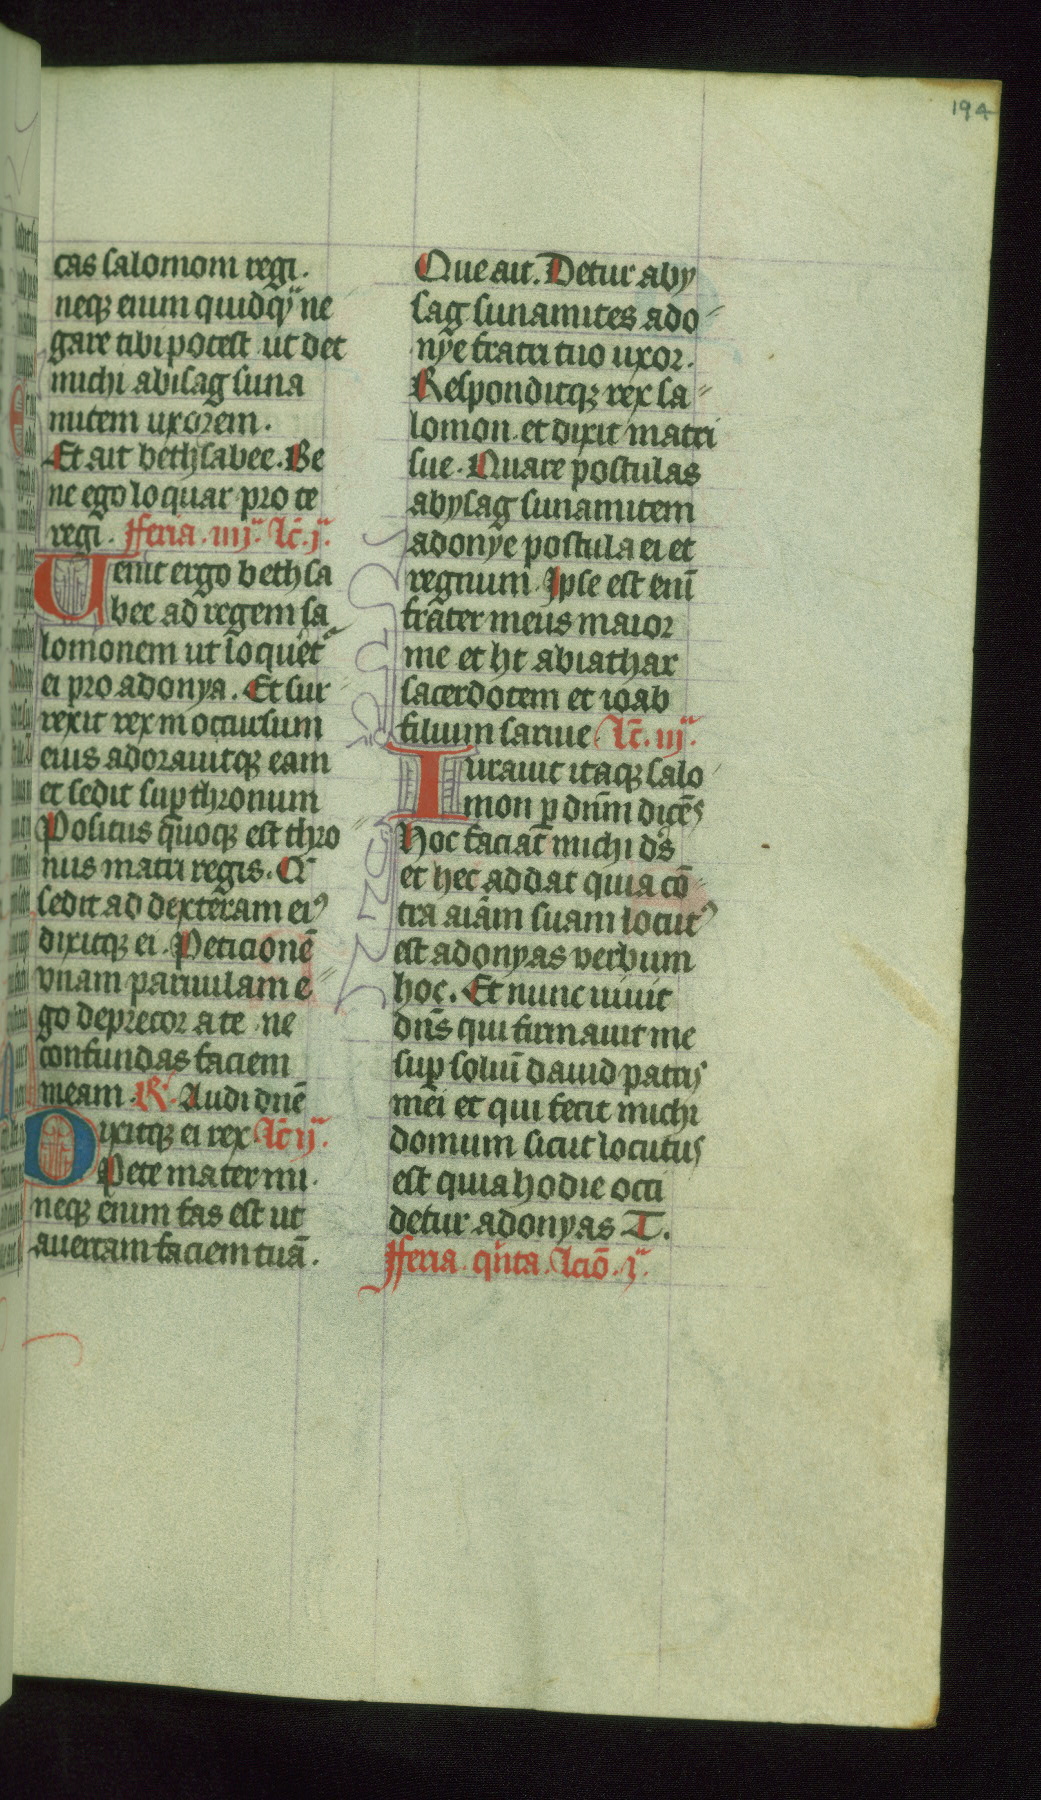 194
cas salomoni regi.
neq; enim quidq̄ ne
gare tibi potest ut det
michi abisag suna
mitem uxorem.
Et ait bethsabee. Be
ne ego loquar pro te
regi. Feria .iiij.ᵃ lc̄. j.ᵃ
Uenit ergo bethsa
bee ad regem sa
lomonem ut loquer̄et̄
ei pro adonya. Et sur
rexit rex in occursum
eius adorauitq; eam
et sedit sup̱ thronum
Positus quoq; est thro
nus matri regis. Q̄
sedit ad dexteram ei⁹
dixitq; ei. Peticionē
vnam paruulam e
go deprecor a te ne
confundas faciem
meam. R̸. Audi dn̄e
Dixitq; ei rex lc̄ ij.ᵃ
Pete mater mi.
neq; enim fas est ut
auertam faciem tuā.
Que ait. Detur aby
sag sunamites ado
nye fratri tuo uxor.
Responditq; rex sa
lomon. et dixit matri
sue. Quare postulas
abysag sunamitem
adonye postula ei et
regnum. Ipse est enī
frater meus maior
me et ht abiathar
sacerdotem et ioab
filium saruie lc̄. iij.ᵃ
Iurauit itaq; salo
mon p̱ dn̄m dicēs
Hoc faciat michi ds̄
et hec addat quia cō
tra aīam suam locut⁹
est adonyas verbum
hoc. Et nunc uiuit
dn̄s qui firmauit me
sup̱ soliū dauid patris
mei et qui fecit michi
domum sicut locutus
est quia hodie occi
detur adonyas T.
Feria qⁱnta. lcıō. j.ᵃ